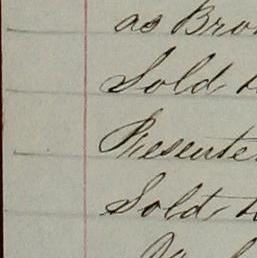 as Bro
Sold
Presente
Sold